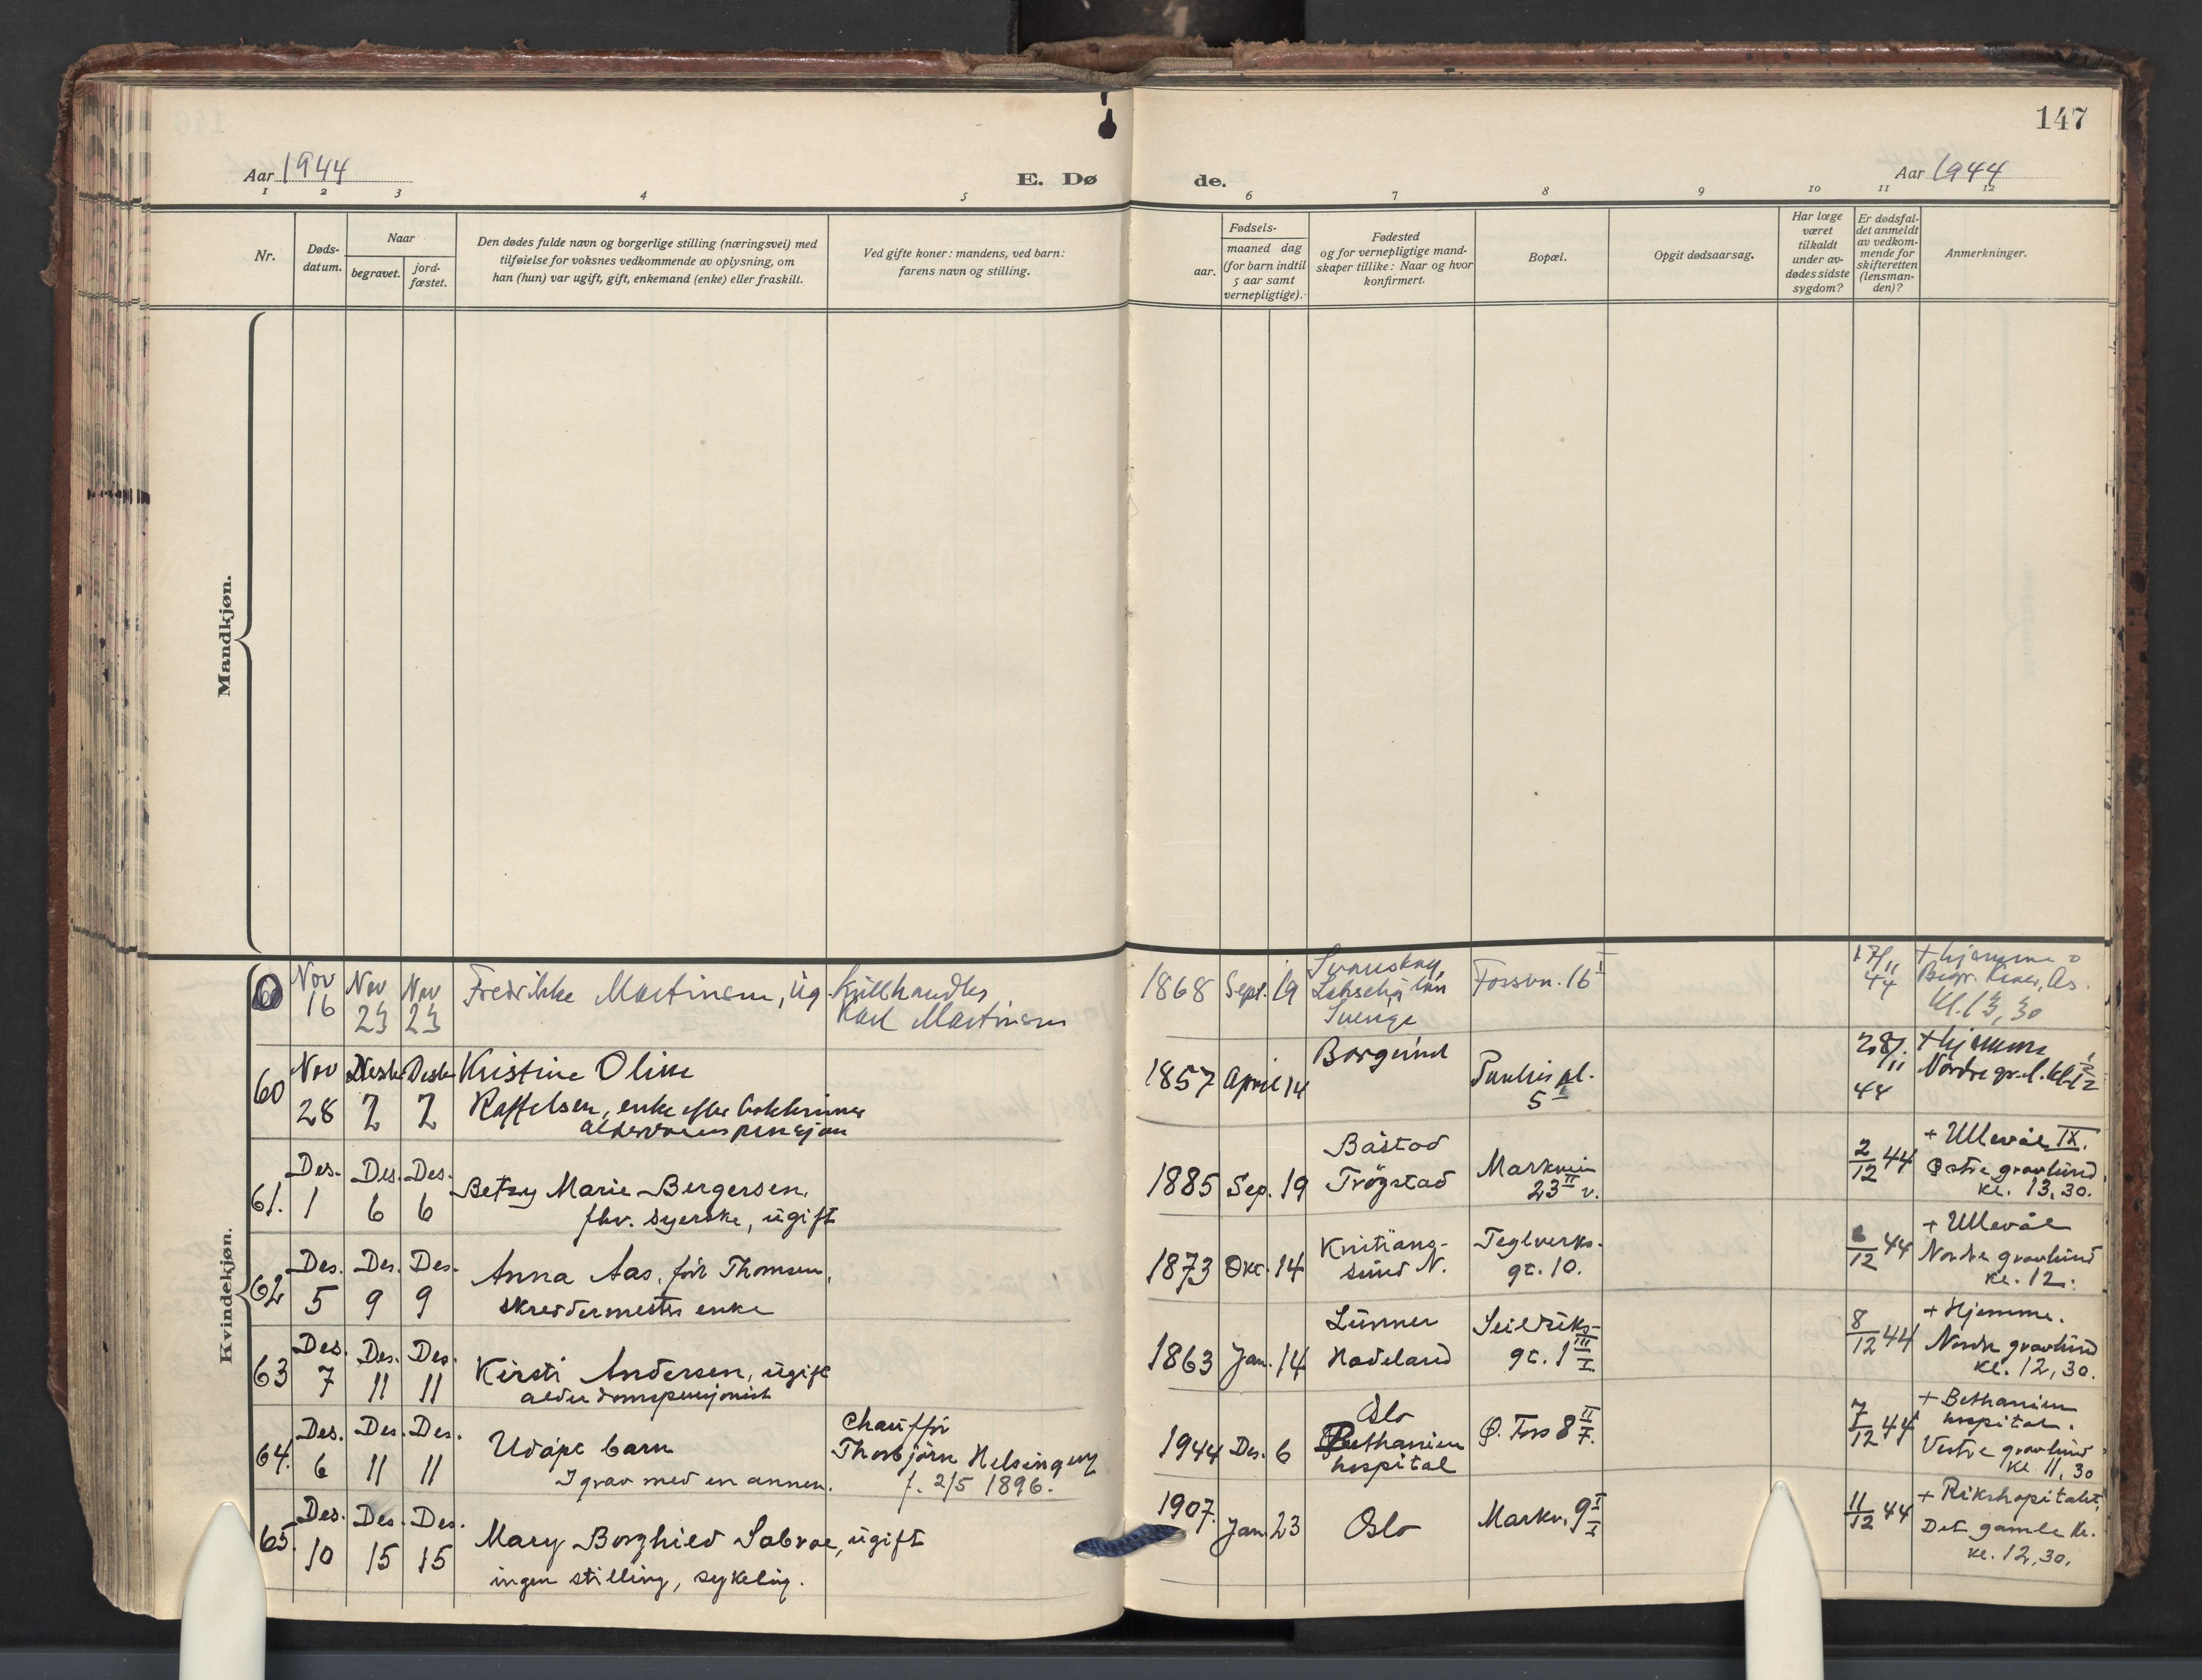 147
Aar 1944
E. Dø
de.
Aar 1944
1 2 3 4 5 6 7 8 9 10 11 12
Nr.
Døds-
datum.
Naar
begravet.
jord-
fæstet.
Den dødes fulde navn og borgerlige stilling (næringsvei) med
tilføielse for voksnes vedkommende av oplysning, om
han (hun) var ugift, gift, enkemand (enke) eller fraskilt.
Ved gifte koner: mandens, ved barn:
farens navn og stilling.
Fødsels-
aar.
maaned dag
(for barn indtil
5 aar samt
vernepligtige).
Fødested
og for vernepligtige mand-
skaper tillike: Naar og hvor
konfirmert.
Bopæl.
Opgit dødsaarsag.
Har læge
været
tilkaldt
under av-
dødes sidste
sygdom?
Er dødsfal-
det anmeldt
av vedkom-
mende for
skifteretten
(lensman-
den)?
Anmerkninger.
Mandkjøn.
Kvindekjøn.
Nov 16
Nov 23
Nov 23
Fredrikke Martinsen, ug
Karl Martinsen
1868 Sept. 19
Sverige
Fossvn. 16 I
17/11 44
+ hjemme
Kl. 13,30
60
Nov 28
7
7
Kristine Oline
Raffelsen, enke efter
1857 April 14
Borgund
Paulus pl.
5
28/11 44
+ hjemme
Nordre gr.l. kl. 12
61.
Des. 1
Des. 6
Des. 6
Betzy Marie Bergersen,
fhv. syerske, ugift
1885 Sep. 19
Båstad
Trøgstad
Markveien
23 II v.
2/12 44
+ Ullevål IX.
Østre gravlund
kl. 13,30.
62
Des. 5
Des. 9
Des. 9
Anna Aas, før Thomsen,
skreddermesters enke
1873 Okt. 14
Kristians-
sund N.
Teglverks-
gt. 10.
6/12 44
+ Ullevål
Nordre gravlund
kl. 12.
63
Des. 7
Des. 11
Des. 11
Kirsti Andersen, ugift
alderdomspensjonist
1863 Jan. 14
Lunner
Hadeland
Seilduks-
gt. 1 III I
8/12 44
+ Hjemme.
Nordre gravlund
kl. 12,30.
64.
Des. 6
Des. 11
Des. 11
Udøpt barn
I grav med en annen.
Chauffør
Thorbjørn Helsingeng
f. 2/5 1896.
1944 Des. 6
Oslo
Bethanien
hospital
Ø. Foss 8 II I.
7/12 44
+ Bethanien
hospital.
Vestre gravlund
kl. 11,30
65.
Des. 10
Des. 15
Des. 15
Mary Borghild Sabroe, ugift
ingen stilling, sykelig.
1907. Jan. 23
Oslo
Markv. 9 I I
11/12 44
+ Rikshospitalet,
Det gamle kr.
kl. 12,30.